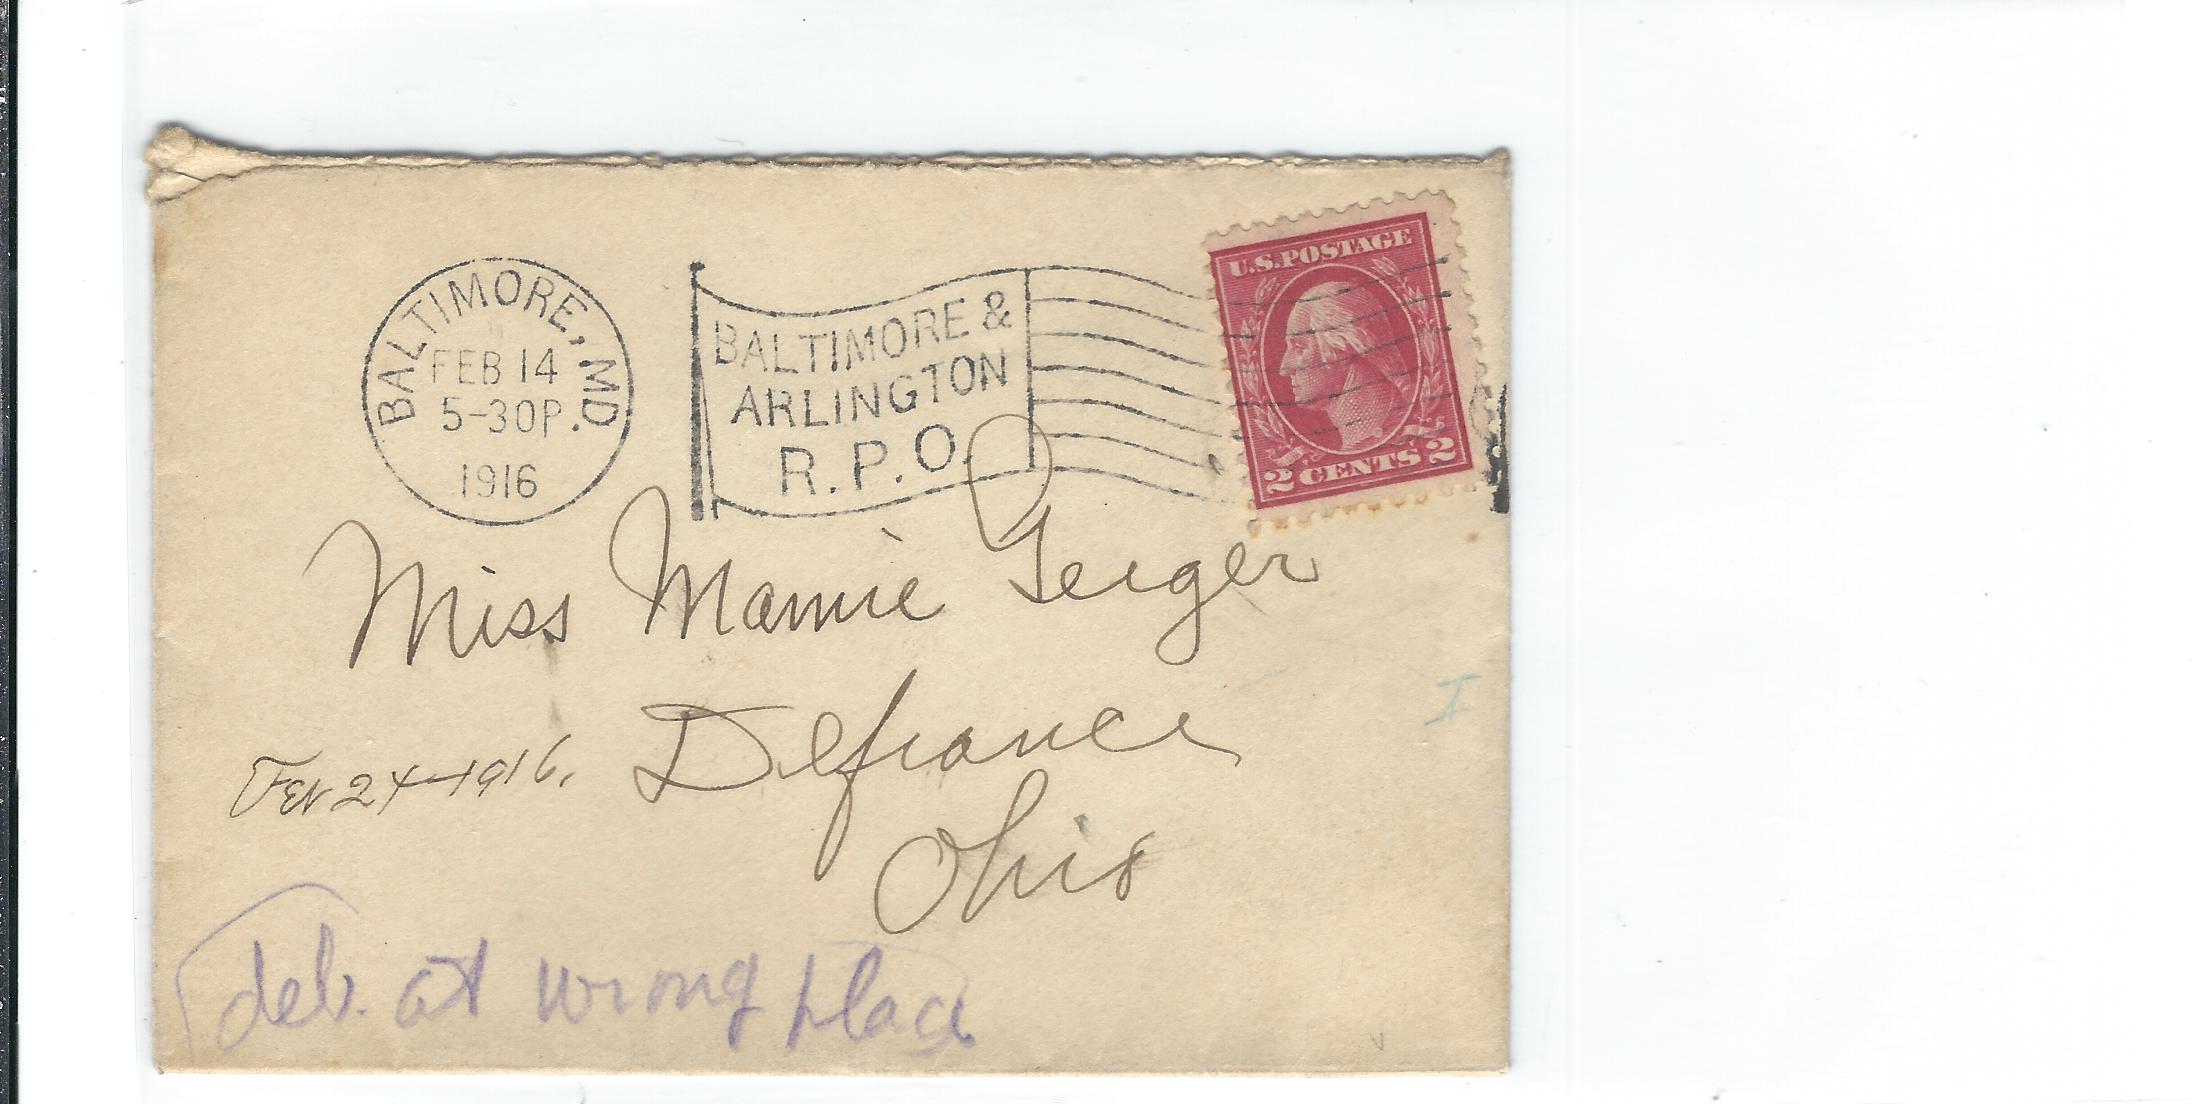 BALTIMORE, MD.
FEB 14
5-30P.
1916
BALTIMORE &
ARLINGTON
R.P.O.
U.S.POSTAGE
2 CENTS 2
Miss Mamie Geiger
Defiance
Ohio
Feb 24-1916.
del. at wrong place
I